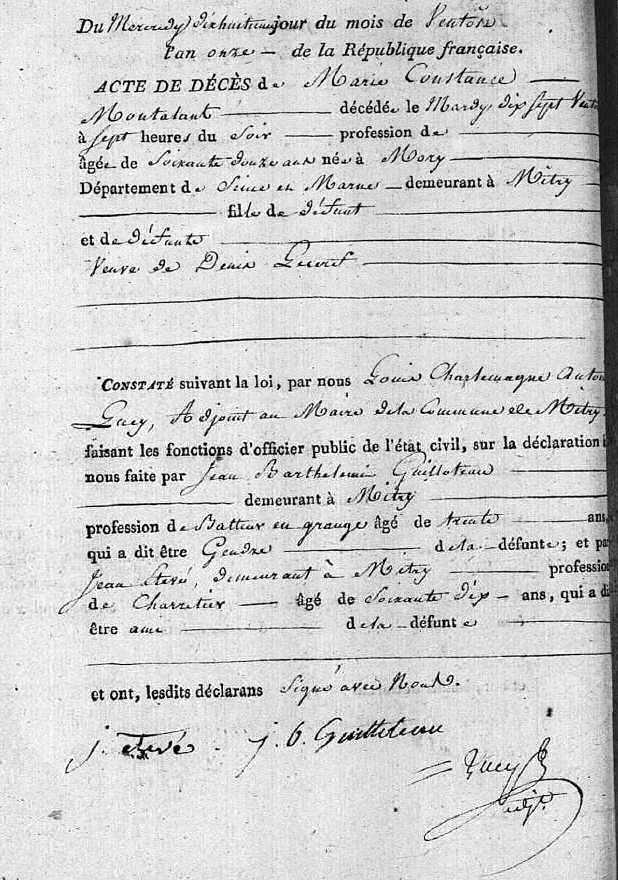 Du Mercredy dixhuitieme jour du mois de Ventôse
l'an onze — de la République française.
ACTE DE DÉCÈS de Marie Constance
Montalant décédée le Mardy dix sept Vento
à sept heures du Soir profession de
âgée de Soixante douze ans née à Mory
Département de Seine et Marne demeurant à Mitry
fille de défunt
et de défunte
Veuve de Denis
CONSTATÉ suivant la loi, par nous Louis Charlemagne Antoi
Lucy, Adjoint au Maire de la Commune de Mitry
faisant les fonctions d'officier public de l'état civil, sur la déclaration
nous faite par Jean Barthelemi Guilloteau
demeurant à Mitry
profession de Batteur en grange âgé de trente ans,
qui a dit être Gendre de la défunte; et par
Jean Etevé, demeurant à Mitry profession
de Charretier âgé de Soixante dix ans, qui a di
être ami de la défunte
et ont, lesdits déclarans Signé avec Nous.
j. etevé. j. b. Guilloteau
Lucy
adjt.